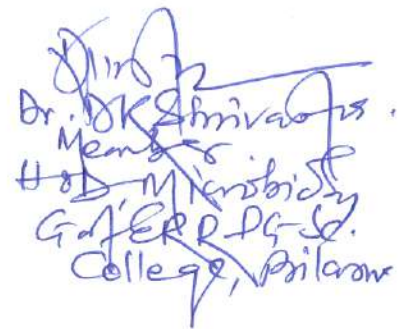 Dr. DK Shrivastava.
Member
HOD, Microbiology
Govt. E R R P.G. Sc.
College, Bilaspur